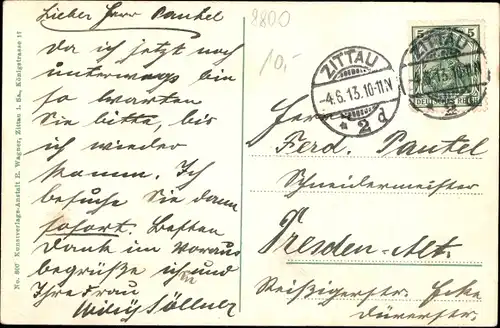 Lieber Herr Pautel
Da ich jetzt noch
unterwegs bin
so warten
Sie bitte, bis
ich wieder
komme. Ich
besuche Sie dann
sofort. Besten
Dank im Voraus
begrüße ich Sie und
Ihre Frau
Willy Söllner
No. 800 Kunstverlags-Anstalt R. Wagner, Zittau i. Sa., Königstrasse 17
8800
10,-
ZITTAU
-4.6.13.10-11N
* 2 d
5 5
ZITTAU
-4.6.13.10-11N
DEUTSCHES REICH
Herrn
Ferd. Pautel
Schneidermeister
Dresden-Alt.
Reißigerstr. Ecke
Dürerstr.